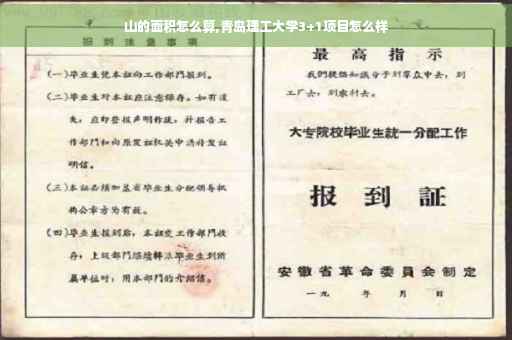 山的面积怎么算,青岛理工大学3+1项目怎么样
报到注意事项
(一)毕业生凭本证向工作部门报到。
(二)毕业生对本证应注意保存。如有遗
失,应即登报声明作废,并报告工
作部门和向原发证机关申请补发证
明信。
(三)本证必须加盖省毕业生分配领导机
构公章方为有效。
(四)毕业生报到后,本证交工作部门收
存;上级部门
毕业生到所
属单位时,用本部门的介绍信。
最高指示
我们提倡知识分子到群众中去,到
工厂去,到农村去。
大专院校毕业生统一分配工作
报到証
安徽省革命委員会制定
一九 年 月 日